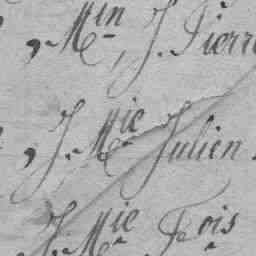 , Min, J. Pierre
, J. Mie Julien
J. Mie Fois